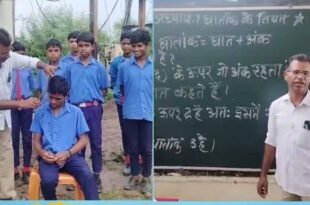 घातांक के नियम
घातांक = घात + अंक
है।
के ऊपर जो अंक रहता
कहते हैं।
ऊपर 3 है अतः इसमें
घातांक 3 है।